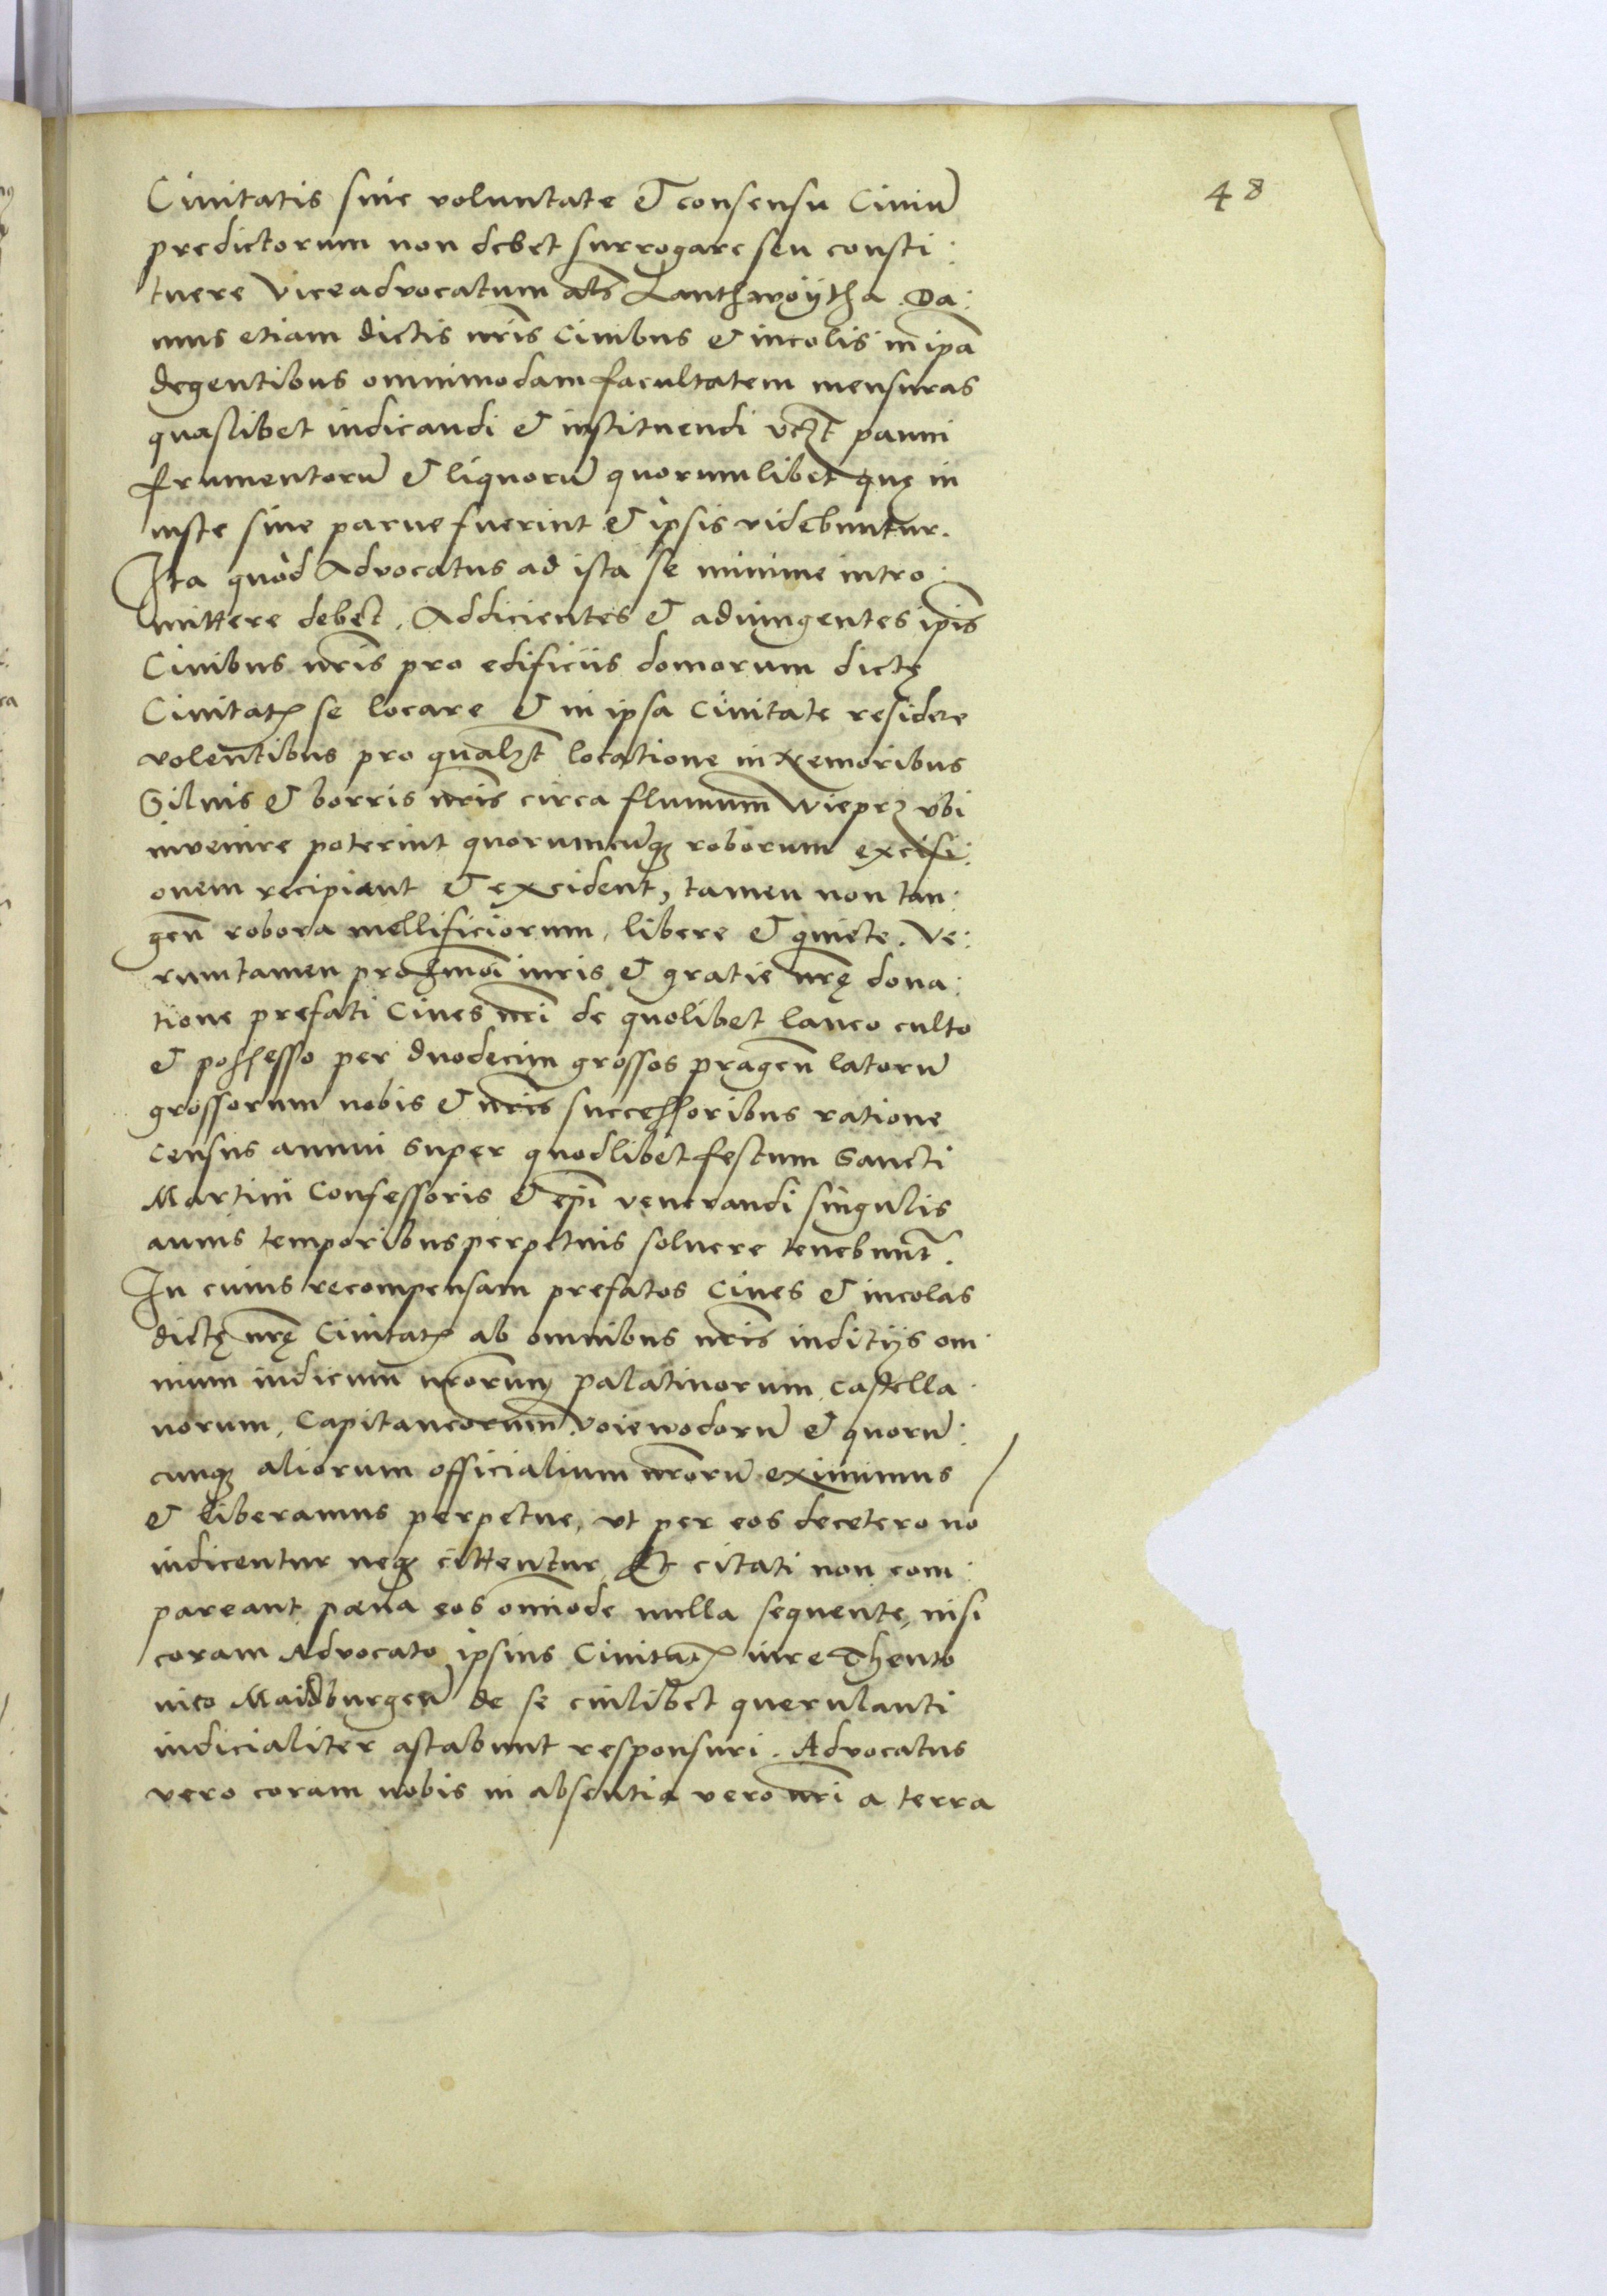 48
Ciuitatis siue voluntate & consensu Ciuiū
predictorum non debet surrogare seu consti:
tuere Viceadvocatum als Lanthwoÿtha. Da:
mus etiam dictis nris̄ Ciuibus & incolis in ipā
degentibus omnimodam facultatem mensuras
quaslibet iudicandi & instituendi vcꝫt panni
frumentorū & liquorū quorumlibet quę in
iuste siue parue fuerint & ipsis videbuntur.
Ita quòd Advocatus ad ista se minime intro:
mittere debet. Addicientes & adiungentes ipis̄
Ciuibus nris̄ pro edificiis domorum dictę
Ciuitatꝭ se locare & in ipsa Ciuitate residere
volentibus pro qualꝫt locatione in nemoribus
Siluis & borris nris̄ circa fluuium̄ Wieprz vbi
invenire poterint quorumcūqꝫ roborum excisi:
onem recipiant & excident, tamen non tan:
gen̄ robora mellificiorum, libere & quiete. Ve:
rumtamen pro hmōi iuris & gratie nrę̄ dona:
tione prefati Ciues nrī de quolibet laneo culto
& possesso per duodecim grossos pragen̄ latorū
grossorum nobis & nris̄ successoribus ratione
census annui super quodlibet festum Sancti
Martini Confessoris & epī venerandi singulis
annis temporibus perpetuis soluere tenebunt̄.
In cuius recompensam prefatos Ciues & incolas
dictę nrę̄ Ciuitatꝭ ab omnibus nris̄ iuditijs om:
nium iudicum nrōrum palatinorum castella:
norum, Capitaneorum voiewodorū & quorū:
cunqꝫ aliorum officialium nrōrū eximimus
& liberamus perpetue, vt per eos decetero nō
iudicentur neqꝫ cittentur, Et citati non com:
pareant pœna eos om̄ode nulla sequente, nisi
coram Advocato ipsius Ciuitatꝭ iure Theuto
nico Maidburgen̄ de se cuilibet querulanti
iudicialiter astabunt responsuri. Advocatus
vero coram nobis in absentia vero nrī a terra